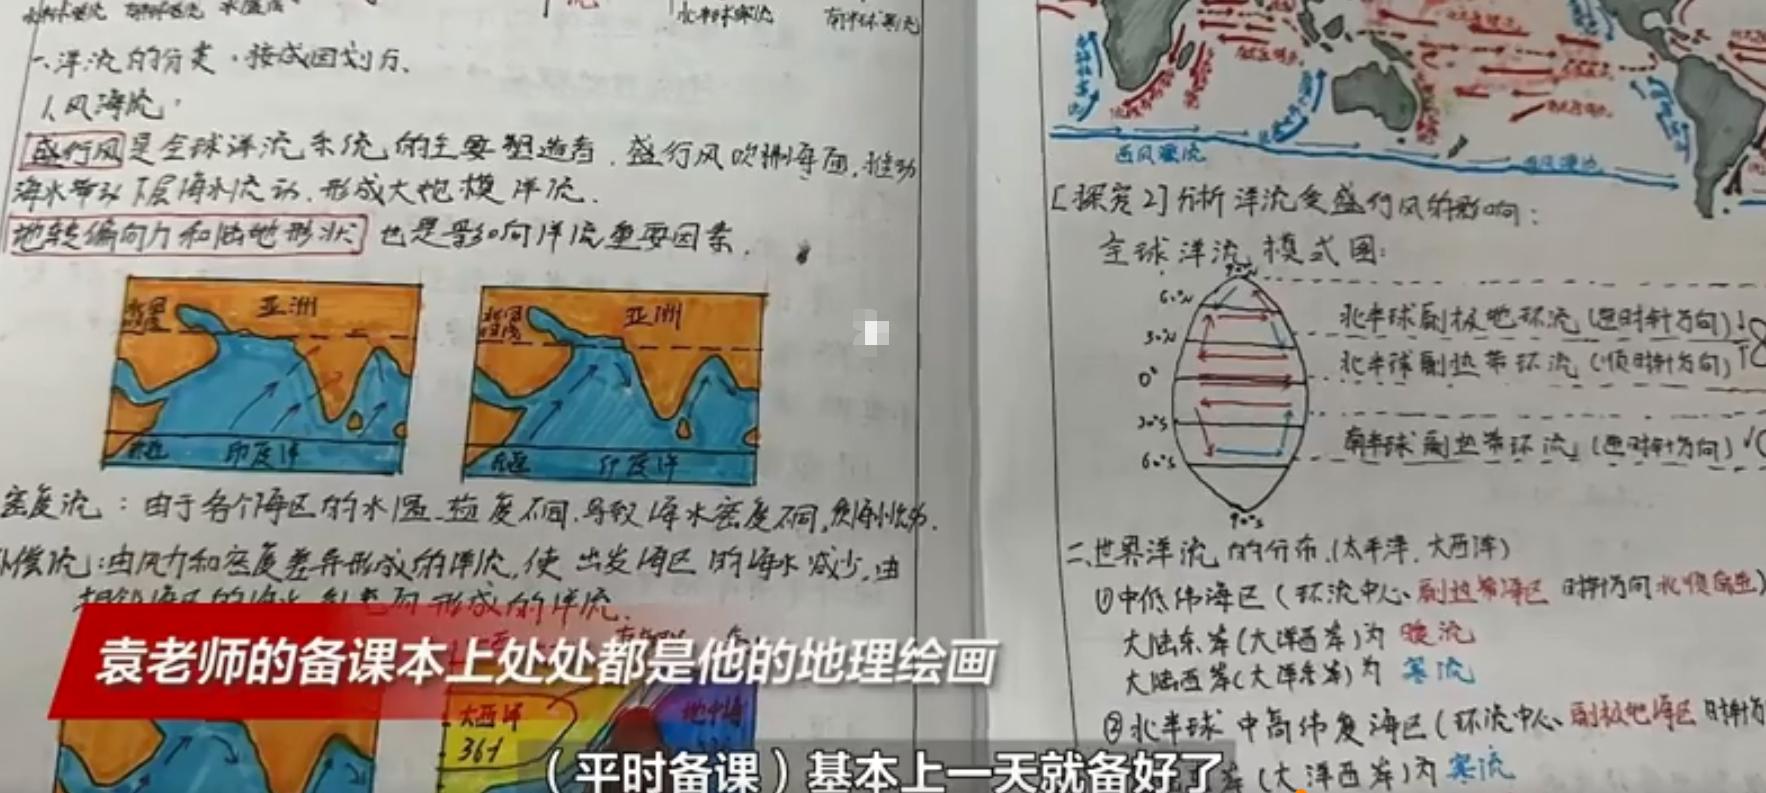 一、洋流的分类·按成因划分、
1、风海流
盛行风是全球洋流系统的主要塑造者.盛行风吹拂海面,推动
海水带动下层海水流动.形成大规模洋流.
地转偏向力和陆地形状 也是影响洋流重要因素.
亚洲
印度洋
亚洲
印度洋
密度流:由于各个海区的水温、盐度不同.导致海水密度不同,
补偿流:由风力和密度差异形成的洋流,使出发海区的海水减少,由
形成的洋流.
大西洋
地中海
361
西风漂流
西风漂流
[探究2]分析洋流受盛行风的影响:
全球洋流模式图:
90°N
60°N
30°N
0°
30°S
60°S
90°S
北半球副极地环流(逆时针方向)
北半球副热带环流(顺时针方向)
南半球副热带环流(逆时针方向)
二、世界洋流的分布.(太平洋、大西洋)
①中低纬海区(环流中心、副热带海区 时针方向北顺南逆)
大陆东岸(大洋西岸)为 暖流
大陆西岸(大洋东岸)为 寒流
②北半球中高纬度海区(环流中心、副极地海区 时针方
岸(大洋西岸)为寒流
袁老师的备课本上处处都是他的地理绘画
(平时备课)基本上一天就备好了